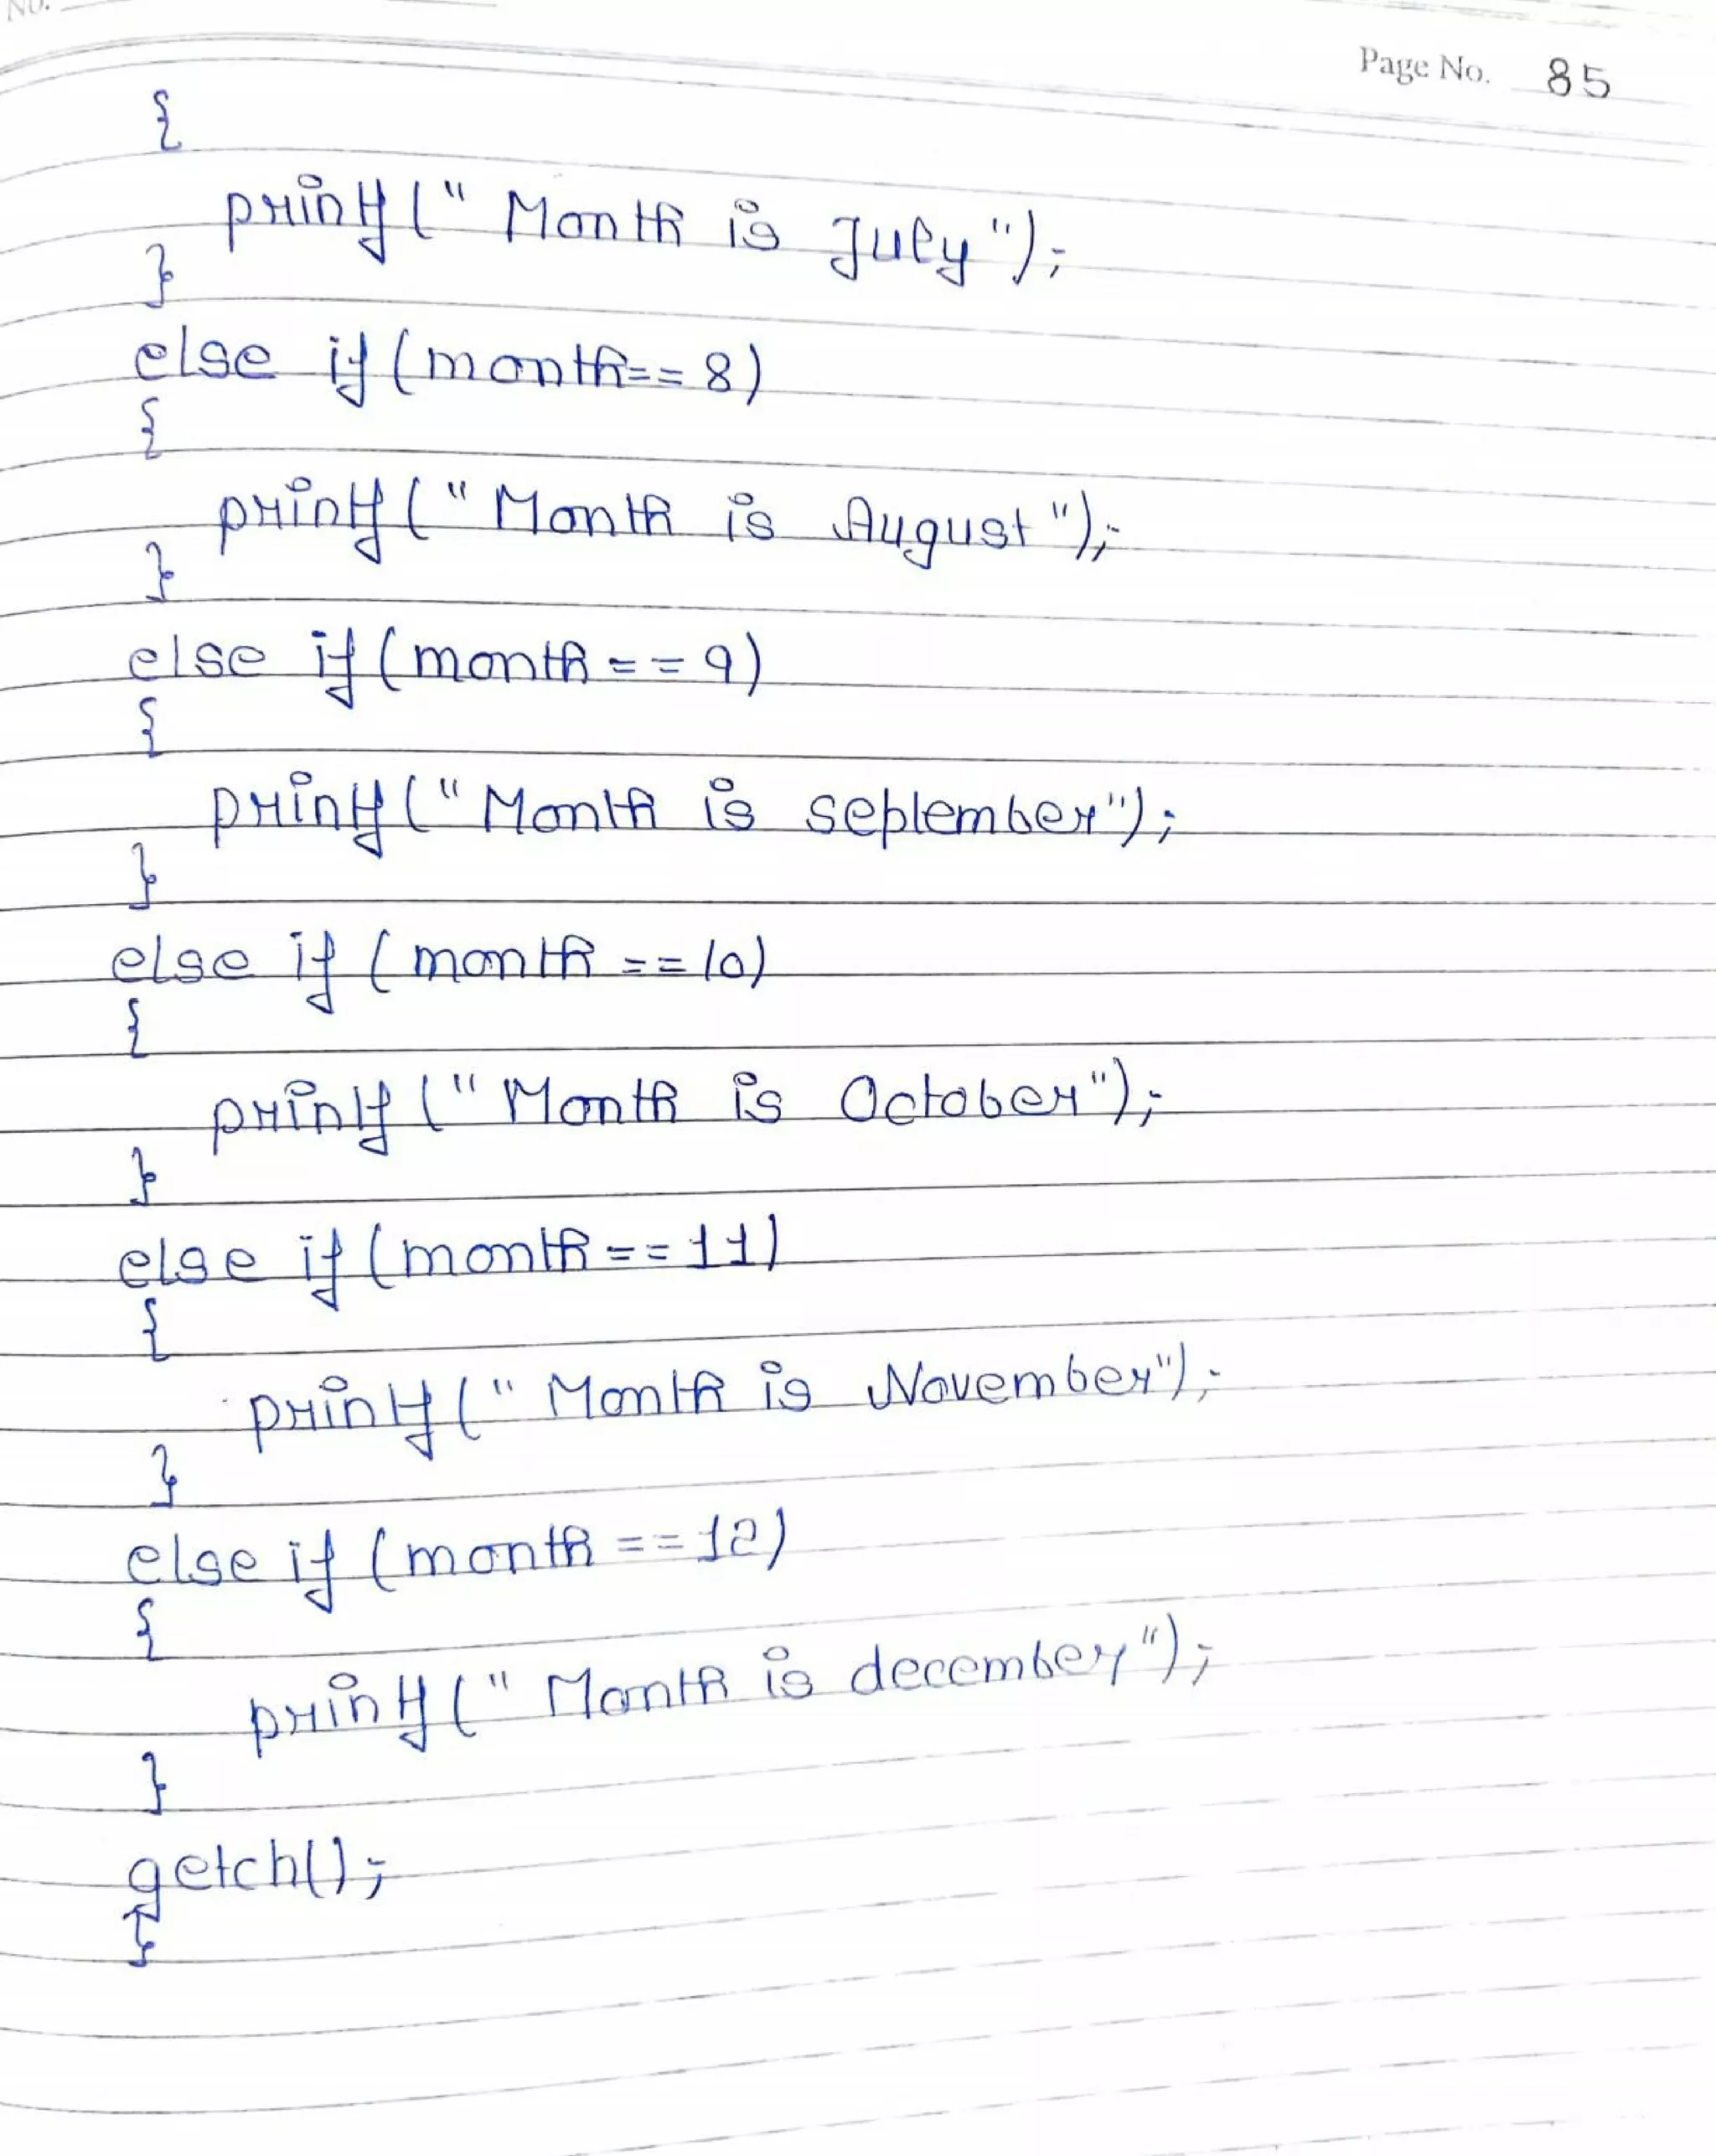 No.
Page No. 85
{
printf(" Month is July");
}
else if (month== 8)
{
printf("Month is August");
}
else if (month == 9)
{
printf("Month is september");
}
else if ( month ==10)
{
printf("Month is October");
}
else if (month ==11)
{
printf("Month is November");
}
else if (month ==12)
{
printf("Month is december");
}
getch();
}